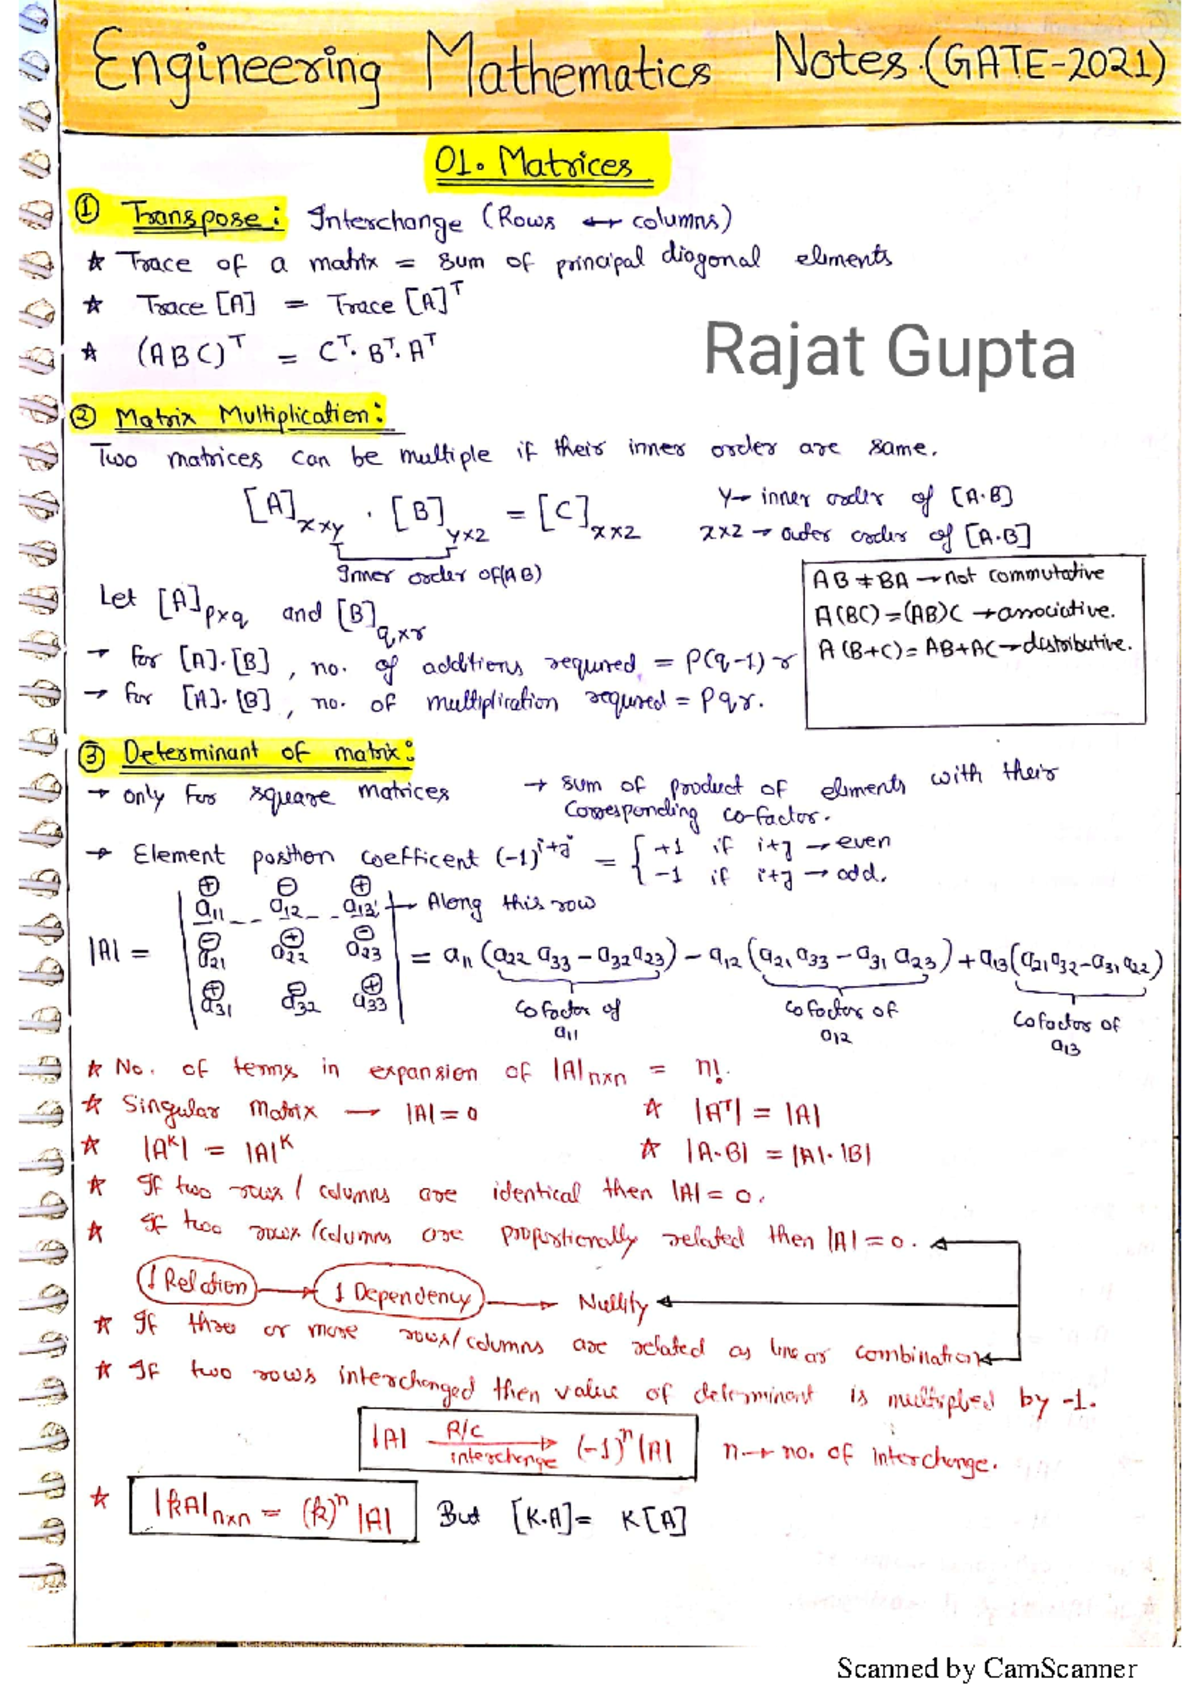 Engineering Mathematics Notes.(GATE-2021)
01. Matrices
① Transpose: Interchange (Rows ↔ columns)
☆ Trace of a matrix = sum of principal diagonal elements
☆ Trace [A] = Trace [A]ᵀ
☆ (ABC)ᵀ = Cᵀ. Bᵀ. Aᵀ
Rajat Gupta
② Matrix Multiplication:
Two matrices can be multiple if their inner order are same.
[A]ₓₓᵧ . [B] y×z = [C] x×z
y → inner order of [A.B]
x×z → outer order of [A.B]
Inner order of (AB)
Let [A] p×q and [B] q×r
→ for [A].[B], no. of additions required = P(q-1) r
→ for [A].[B], no. of multiplication required = Pqr.
AB ≠ BA → not commutative
A(BC) = (AB)C → associative.
A(B+C) = AB+AC → distributive.
③ Determinant of matrix:
→ only for square matrices
→ sum of product of elements with their
corresponding co-factor.
→ Element position coefficent (-1)^i+j = { +1 if i+j → even
-1 if i+j → odd.
⊕ ⊖ ⊕
a₁₁ a₁₂ a₁₃ → Along this row
|A| = ⊖ a₂₁ ⊕ a₂₂ ⊖ a₂₃ = a₁₁ (a₂₂ a₃₃ - a₃₂ a₂₃) - a₁₂ (a₂₁ a₃₃ - a₃₁ a₂₃) + a₁₃ (a₂₁ a₃₂ - a₃₁ a₂₂)
⊕ a₃₁ ⊖ a₃₂ ⊕ a₃₃
Cofactor of a₁₁
Cofactor of a₁₂
Cofactor of a₁₃
☆ No. of terms in expansion of |A| n×n = n!
☆ Singular Matrix → |A| = 0 ☆ |Aᵀ| = |A|
☆ |Aᴷ| = |A|ᴷ ☆ |A.B| = |A|.|B|
☆ If two rows / columns are identical then |A| = 0.
☆ If two rows/columns are proportionally related then |A| = 0.
1 Relation → 1 Dependency → Nullity
☆ If three or more rows/columns are related as linear combination
☆ If two rows interchanged then value of determinant is multiplied by -1.
|A| R/C interchange → (-1)ⁿ |A| n → no. of interchange.
☆ |kA| n×n = (k)ⁿ |A| But [K.A] = K[A]
Scanned by CamScanner